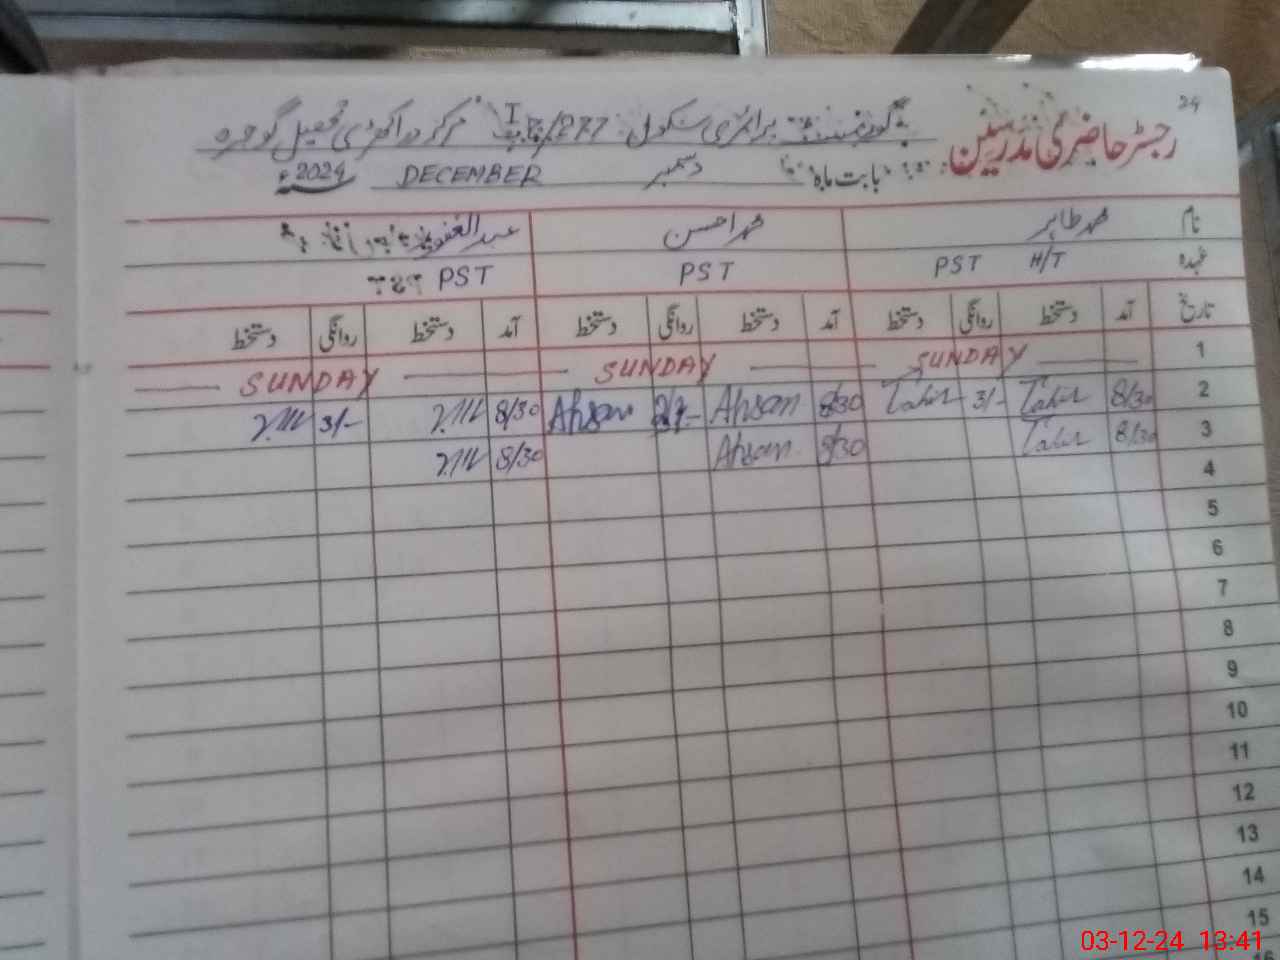 24
رجسٹر حاضری مدرسین
گورنمنٹ پرائمری سکول 277 مرکز تحصیل گوجرہ
بابت ماہ دسمبر DECEMBER 2024ء
نام محمد طاہر محمد احسن عبدالغفور
عہدہ PST H/T PST PST
تاریخ آمد دستخط روانگی دستخط آمد دستخط روانگی دستخط آمد دستخط روانگی دستخط
1 SUNDAY SUNDAY SUNDAY
2 8/30 Tahir 3/- Tahir 8/30 Ahsan Ahsan 8/30 3/-
3 8/30 Tahir 8/30 Ahsan 8/30
4
5
6
7
8
9
10
11
12
13
14
15
16
03-12-24 13:41